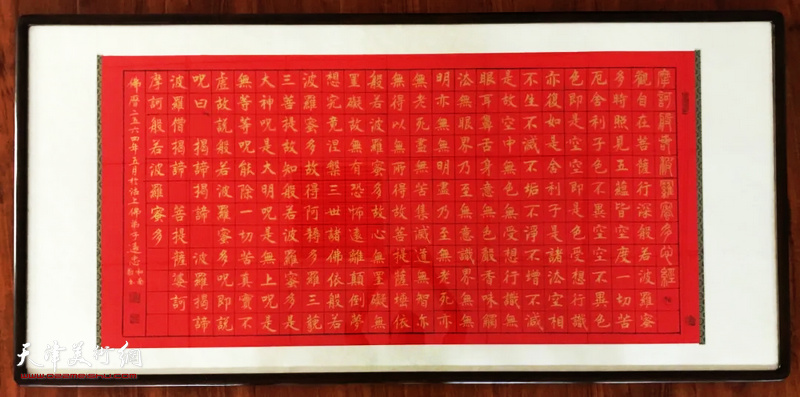 摩訶般若波羅蜜多心經
觀自在菩薩行深般若波羅蜜
多時照見五蘊皆空度一切苦
厄舍利子色不異空空不異色
色即是空空即是色受想行識
亦復如是舍利子是諸法空相
不生不滅不垢不淨不增不減
是故空中無色無受想行識無
眼耳鼻舌身意無色聲香味觸
法無眼界乃至無意識界無無
明亦無無明盡乃至無老死亦
無老死盡無苦集滅道無智亦
無得以無所得故菩提薩埵依
般若波羅蜜多故心無罣礙無
罣礙故無有恐怖遠離顛倒夢
想究竟涅槃三世諸佛依般若
波羅蜜多故得阿耨多羅三藐
三菩提故知般若波羅蜜多是
大神呪是大明呪是無上呪是
無等等呪能除一切苦真實不
虛故說般若波羅蜜多呪即說
呪曰 揭諦揭諦 波羅揭諦
波羅僧揭諦 菩提薩婆訶
摩訶般若波羅蜜多
佛曆二五六四年五月於沽上佛弟子
天津美術網